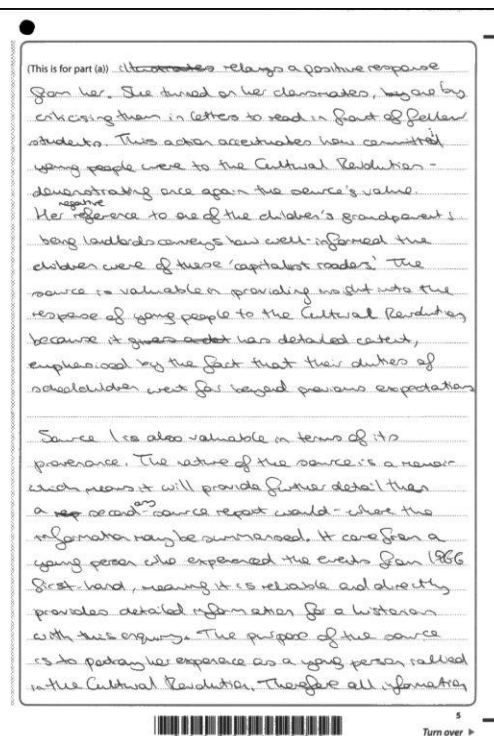 (This is for part (a)) illustrates relays a positive response
from her. She turned on her classmates, by one by
criticising them in letters to read in front of fellow
students. This action accentuates how committed
young people were to the Cultural Revolution -
demonstrating once again the source's value.
negative
Her reference to one of the children's grandparents
being landlords conveys how well-informed the
children were of these 'capitalist roaders'. The
source is valuable in providing insight into the
response of young people to the Cultural Revolution
because it gives a det has detailed content,
emphasised by the fact that their duties of
schoolchildren went far beyond previous expectations
Source 1 is also valuable in terms of its
provenance. The nature of the source is a memoir
which means it will provide further detail than
a rep second-source report would - where the
information may be summarised. It came from a
young person who experienced the events from 1966
first-hand, meaning it is reliable and directly
provides detailed information for a historian
with this enquiry. The purpose of the source
is to portray her experience as a young person rallied
in the Cultural Revolution. Therefore all information
5
Turn over